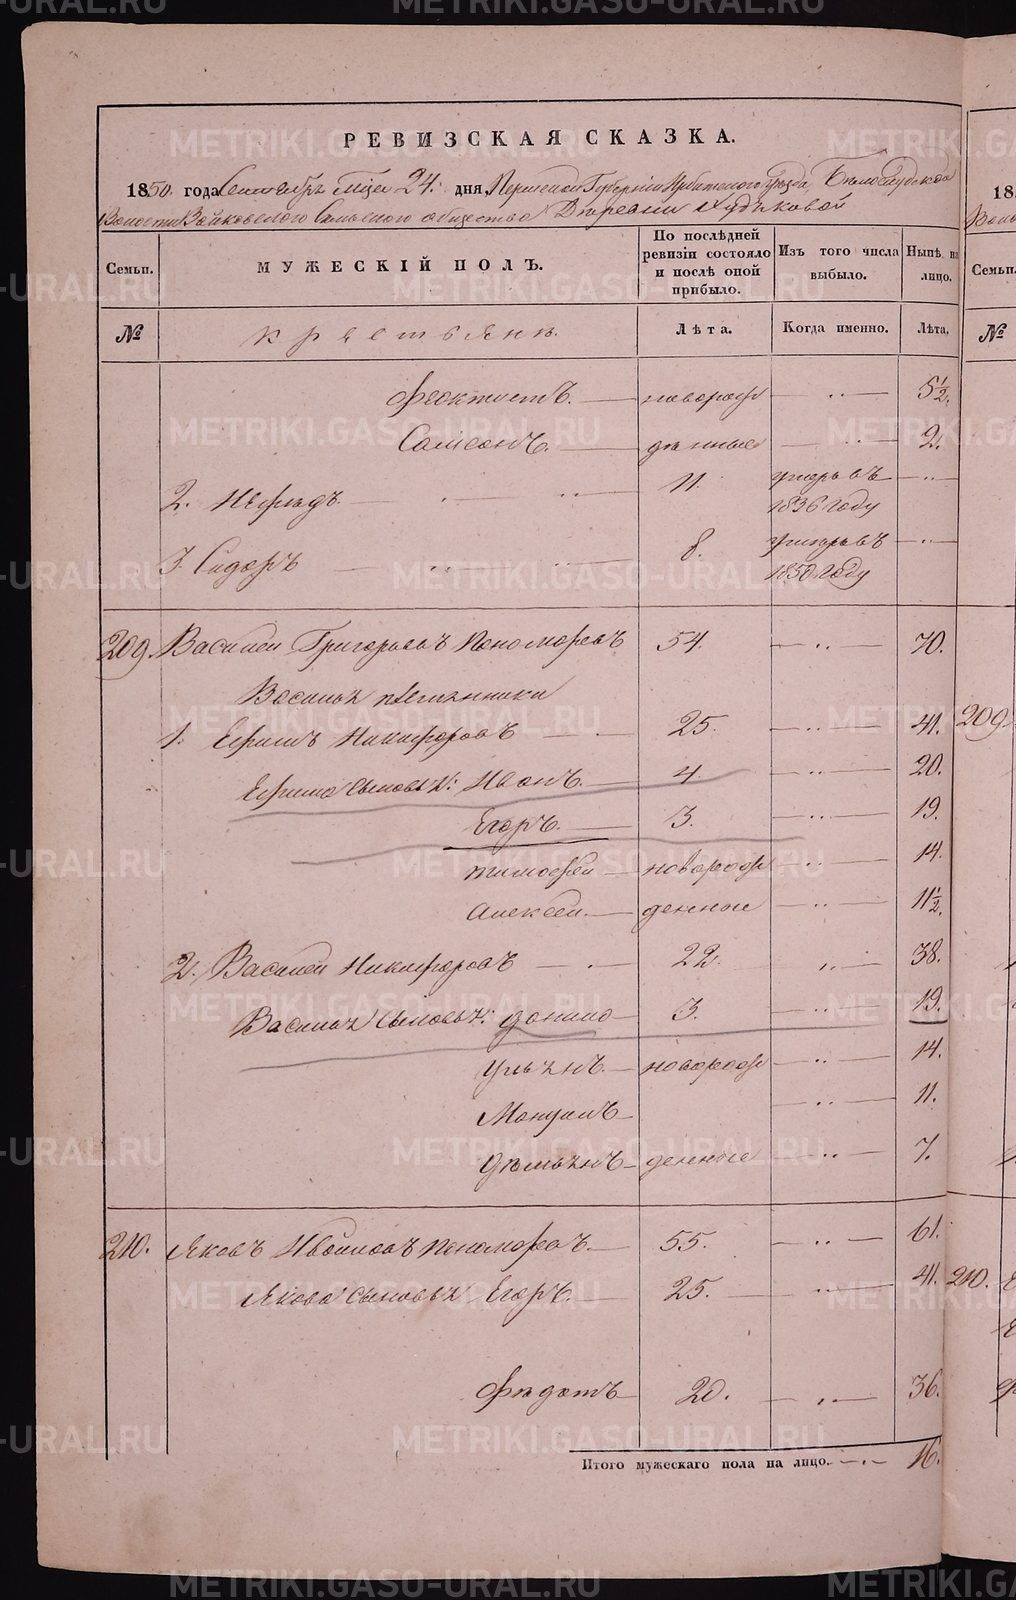 РЕВИЗСКАЯ СКАЗКА.
1850. года Сентября м̃ца 24. дня, Пермской Губернiи Ирбитского уѣзда, Бѣлослудской
Волости Зайковского Сельского общества Деревни
Семьи. МУЖЕСКIЙ ПОЛЪ. По послѣдней ревизiи состояло и послѣ оной прибыло. Изъ того числа выбыло. Нынѣ на лицо.
№ крестьяне. Лѣта. Когда именно. Лѣта.
Феоктистъ. новорож 5½.
Самсонъ. денные 2.
2. Нефедъ 11. умеръ въ 1836 году
3. Сидоръ 8. умеръ въ 1850 году
209. Василей Григорьевъ Пономоревъ 54. 70.
Васильа племянники
1. Ефимъ Никифоровъ 25. 41.
Ефима сыновьа: Иванъ. 4. 20.
Егоръ. 3. 19.
тимофей новорож 14.
Алексей. денные 11½.
2. Василей Никифоровъ 22. 38.
Васильа сыновьа: данило 3. 19.
Ульанъ. новорож 14.
Мануилъ 11.
демьанъ денные 7.
210. Яковъ Ивановъ Пономоревъ. 55. 61.
Якова сыновьа Егоръ. 25. 41.
федотъ 20. 36.
Итого мужескаго пола на лицо. 16.
209.
210.
18
Семьи.
№
METRIKI.GASO-URAL.RU